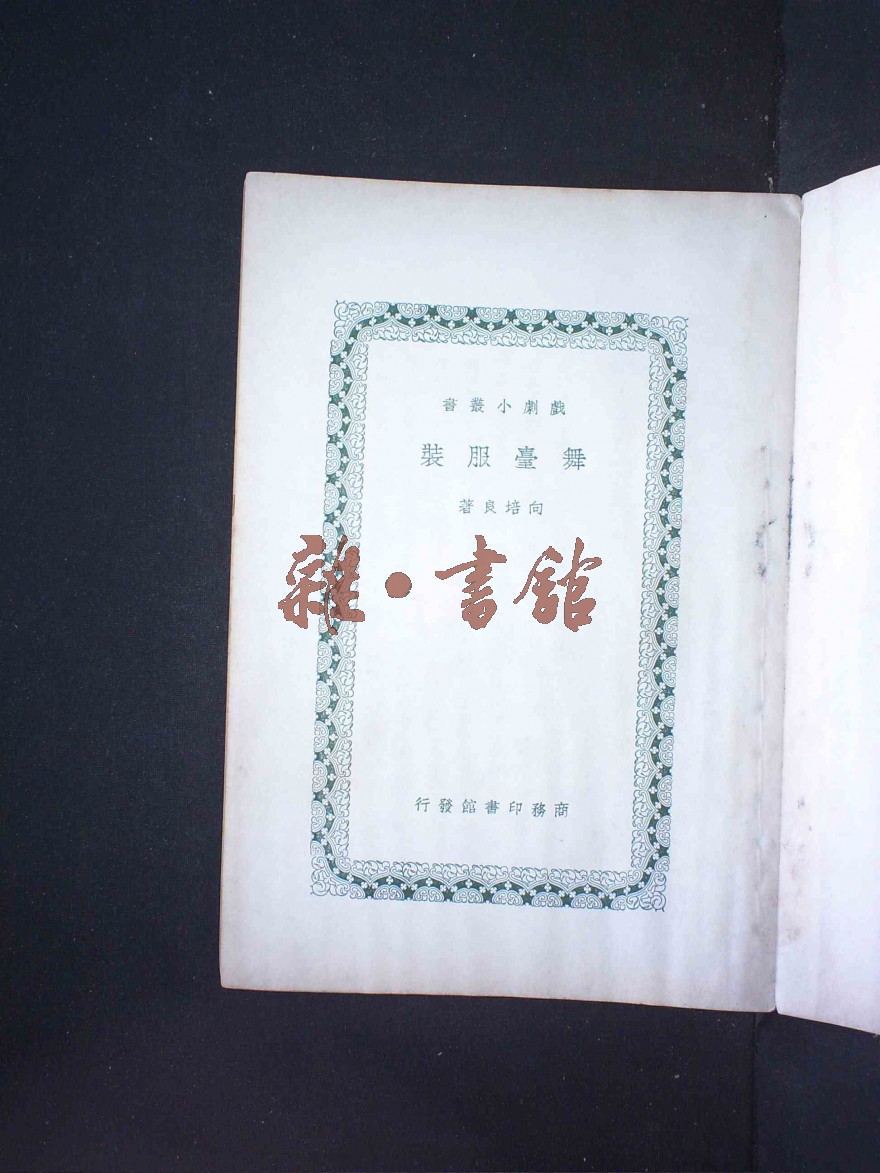 戲劇小叢書
舞臺服裝
向培良著
雜·書館
商務印書館發行